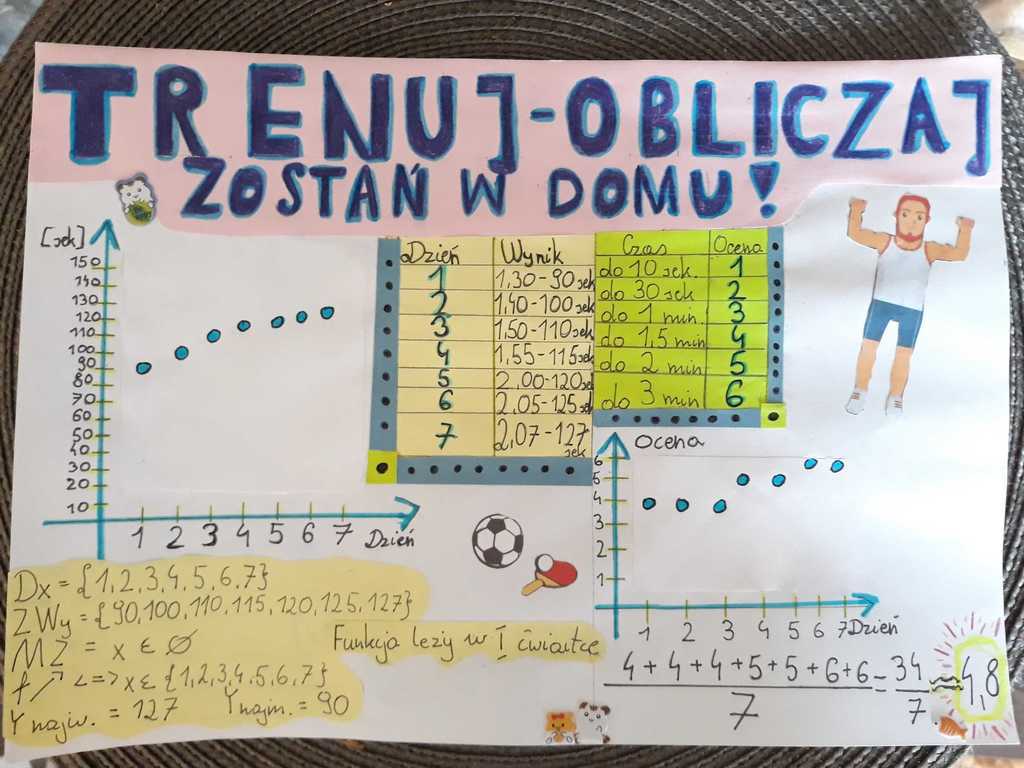 TRENUJ-OBLICZAJ
ZOSTAŃ W DOMU!
[sek]
150
140
130
120
110
100
90
80
70
60
50
40
30
20
10
1 2 3 4 5 6 7 Dzień
Dzień Wynik
1 1,30-90sek
2 1,40-100sek
3 1,50-110sek
4 1,55-115sek
5 2,00-120sek
6 2,05-125sek
7 2,07-127 sek
Czas Ocena
do 10 sek. 1
do 30 sek 2
do 1 min. 3
do 1,5 min 4
do 2 min 5
do 3 min 6
Ocena
6
5
4
3
2
1
1 2 3 4 5 6 7 Dzień
Dx = {1,2,3,4,5,6,7}
ZWy = {90,100,110,115,120,125,127}
MZ = x ε ∅
f ↗ <=> x ε {1,2,3,4,5,6,7}
Y najw. = 127 Y najm. = 90
Funkcja leży w I ćwiartce
4+4+4+5+5+6+6 = 34 ≈ 4,8
7 7